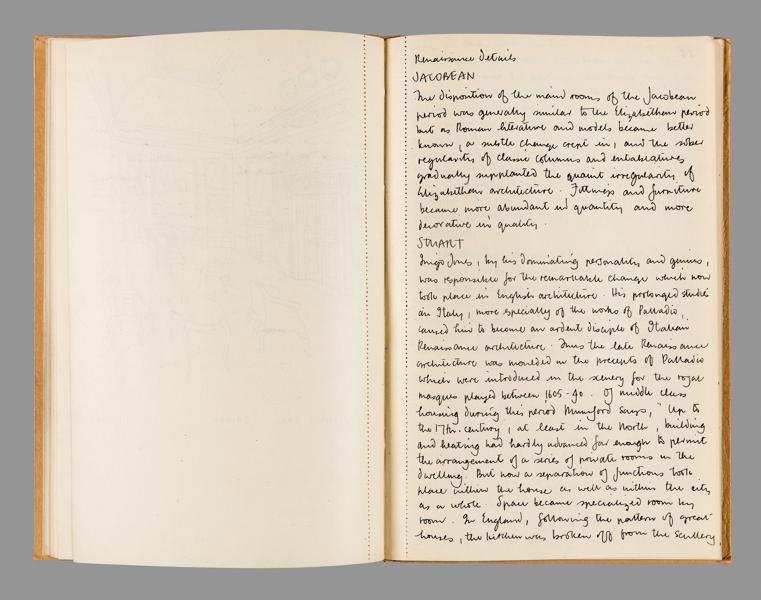 Renaissance Details
JACOBEAN
The disposition of the main rooms of the Jacobean
period was generally similar to the Elizabethan period
but as Roman literature and models became better
known, a subtle change crept in, and the sober
regularity of classic columns and entablatures
gradually supplanted the quaint irregularity of
Elizabethan architecture. Fittings and furniture
became more abundant in quantity and more
decorative in quality.
STUART
Inigo Jones, by his dominating personality and genius,
was responsible for the remarkable change which now
took place in English architecture. His prolonged studies
in Italy, more especially of the works of Palladio,
caused him to become an ardent disciple of Italian
Renaissance architecture. Thus the late Renaissance
architecture was moulded on the precepts of Palladio
which were introduced in the scenery for the royal
masques played between 1605-40. Of middle class
housing during this period Mumford says, "Up to
the 17th. century, at least in the North, building
and heating had hardly advanced far enough to permit
the arrangement of a series of private rooms in the
dwelling. But now a separation of functions took
place within the house as well as within the city
as a whole. Space became specialized room by
room. In England, following the pattern of great
houses, the kitchen was broken off from the scullery,